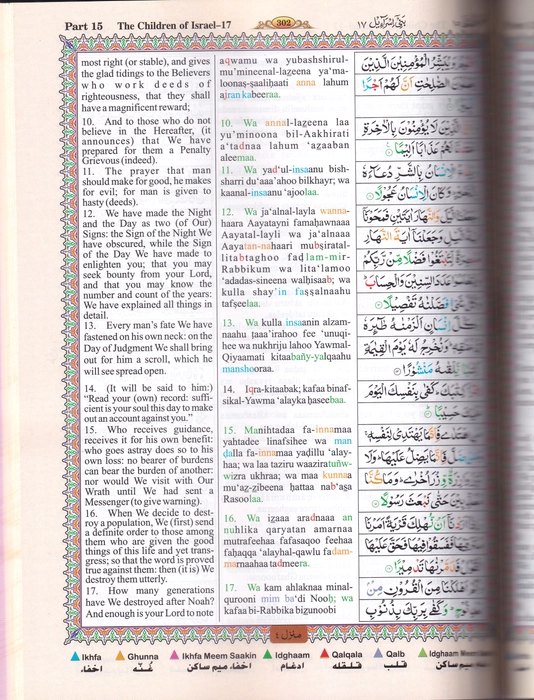 Part 15 The Children of Israel–17 302 بنی اسرآءیل ١٧
most right (or stable), and gives
the glad tidings to the Believers
who work deeds of
righteousness, that they shall
have a magnificent reward;
10. And to those who do not
believe in the Hereafter, (it
announces) that We have
prepared for them a Penalty
Grievous (indeed).
11. The prayer that man
should make for good, he makes
for evil; for man is given to
hasty (deeds).
12. We have made the Night
and the Day as two (of Our)
Signs: the Sign of the Night We
have obscured, while the Sign
of the Day We have made to
enlighten you; that you may
seek bounty from your Lord,
and that you may know the
number and count of the years:
We have explained all things in
detail.
13. Every man's fate We have
fastened on his own neck: on the
Day of Judgment We shall bring
out for him a scroll, which he
will see spread open.
14. (It will be said to him:)
"Read your (own) record: suffi-
cient is your soul this day to make
out an account against you."
15. Who receives guidance,
receives it for his own benefit:
who goes astray does so to his
own loss: no bearer of burdens
can bear the burden of another:
nor would We visit with Our
Wrath until We had sent a
Messenger (to give warning).
16. When We decide to dest-
roy a population, We (first) send
a definite order to those among
them who are given the good
things of this life and yet trans-
gress; so that the word is proved
true against them: then (it is) We
destroy them utterly.
17. How many generations
have We destroyed after Noah?
And enough is your Lord to note
aqwamu wa yubashshirul-
mu'mineenal-lazeena ya'ma-
loonaṣ-ṣaaliḥaati anna lahum
ajran kabeeraa.
10. Wa annal-lazeena laa
yu'minoona bil-Aakhirati
a'tadnaa lahum 'azaaban
aleemaa.
11. Wa yad'ul-insaanu bish-
sharri du'aaa'ahoo bilkhayr; wa
kaanal-insaanu 'ajoolaa.
12. Wa ja'alnal-layla wanna-
haara Aayatayni famaḥawnaaa
Aayatal-layli wa ja'alnaaa
Aayatan-nahaari mubṣiratal-
litabtaghoo faḍlam-mir-
Rabbikum wa lita'lamoo
'adadas-sineena walḥisaab; wa
kulla shay'in faṣṣalnaahu
tafṣeelaa.
13. Wa kulla insaanin alzam-
naahu ṭaaa'irahoo fee 'unuqi-
hee wa nukhriju lahoo Yawmal-
Qiyaamati kitaabañy-yalqaahu
manshooraa.
14. Iqra-kitaabak; kafaa binaf-
sikal-Yawma 'alayka ḥaseebaa.
15. Manihtadaa fa-innamaa
yahtadee linafsihee wa man
ḍalla fa-innamaa yaḍillu 'alay-
haa; wa laa taziru waaziratuñw-
wizra ukhraa; wa maa kunnaa
mu'aẓ-ẓibeena ḥattaa nab'aṣa
Rasoolaa.
16. Wa iẓaaa aradnaaa an
nuhlika qaryatan amarnaa
mutrafeehaa fafasaqoo feehaa
faḥaqqa 'alayhal-qawlu fadam-
marnaahaa tadmeeraa.
17. Wa kam ahlaknaa minal-
qurooni mim ba'di Nooḥ; wa
kafaa bi-Rabbika biẓunoobi
وَيُبَشِّرُ الْمُؤْمِنِيْنَ الَّذِيْنَ
الصّٰلِحٰتِ اَنَّ لَهُمْ اَجْرًا
لَا يُؤْمِنُوْنَ بِالْاٰخِرَةِ
لَهُمْ عَذَابًا اَلِيْمًا
الْاِنْسَانُ بِالشَّرِّ دُعَآءَهٗ
وَكَانَ الْاِنْسَانُ عَجُوْلًا
وَالنَّهَارَ اٰيَتَيْنِ فَمَحَوْنَآ
وَجَعَلْنَآ اٰيَةَ النَّهَارِ
فَضْلًا مِّنْ رَّبِّكُمْ
عَدَدَ السِّنِيْنَ وَالْحِسَابَ
فَصَّلْنٰهُ تَفْصِيْلًا
اِنْسَانٍ اَلْزَمْنٰهُ طٰٓئِرَهٗ
وَنُخْرِجُ لَهٗ يَوْمَ الْقِيٰمَةِ
مَنْشُوْرًا
كَفٰى بِنَفْسِكَ الْيَوْمَ
حَسِيْبًا
فَاِنَّمَا يَهْتَدِيْ لِنَفْسِهٖ
فَاِنَّمَا يَضِلُّ عَلَيْهَا وَلَا
وِّزْرَ اُخْرٰى وَمَا كُنَّا
حَتّٰى نَبْعَثَ رَسُوْلًا
اَنْ نُّهْلِكَ قَرْيَةً اَمَرْنَا
فَفَسَقُوْا فِيْهَا فَحَقَّ عَلَيْهَا
فَدَمَّرْنٰهَا تَدْمِيْرًا
اَهْلَكْنَا مِنَ الْقُرُوْنِ مِنْۢ
وَكَفٰى بِرَبِّكَ بِذُنُوْبِ
منزل ٤
Ikhfa Ghunna Ikhfa Meem Saakin Idghaam Qalqala Qalb Idghaam Meem
اخفاء غنّه اخفاء میم ساکن ادغام قلقله قلب میم ساکن